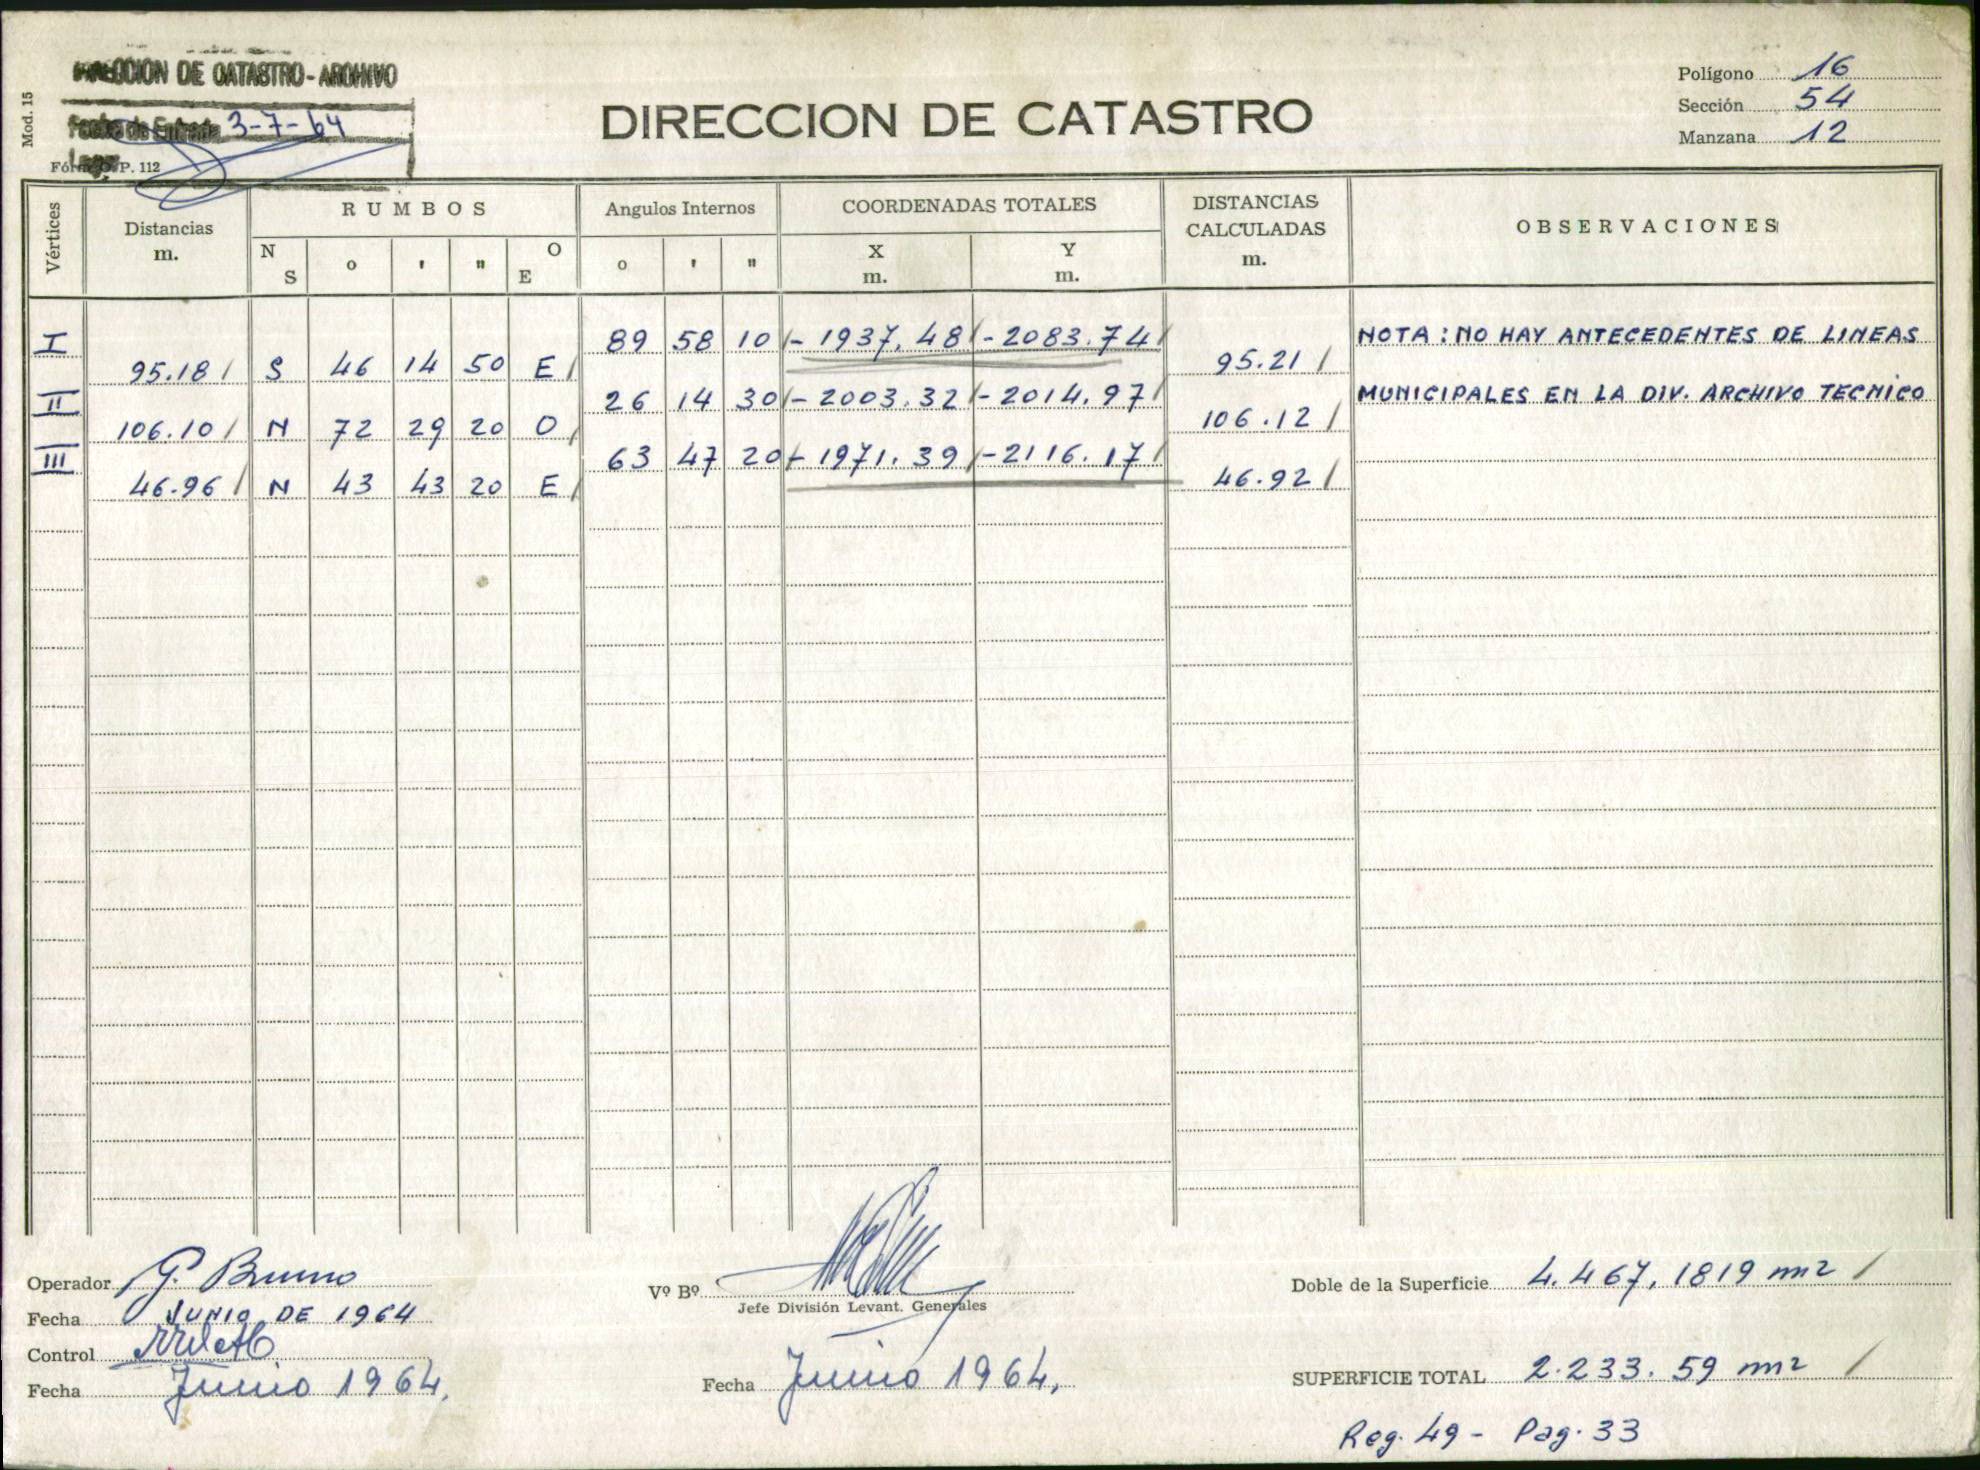 DIRECCION DE CATASTRO - ARCHIVO
Fecha de Entrada 3-7-64
Mod. 15
P. 112
DIRECCION DE CATASTRO
Polígono 16
Sección 54
Manzana 12
Vértices
Distancias m.
RUMBOS
N S
o ' "
O E
Angulos Internos
o ' "
COORDENADAS TOTALES
X m.
Y m.
DISTANCIAS CALCULADAS m.
OBSERVACIONES
I 89 58 10 - 1937.48 - 2083.74 NOTA: NO HAY ANTECEDENTES DE LINEAS
95.18 S 46 14 50 E 95.21
II 26 14 30 - 2003.32 - 2014.97 MUNICIPALES EN LA DIV. ARCHIVO TECNICO
106.10 N 72 29 20 O 106.12
III 63 47 20 - 1971.39 - 2116.17
46.96 N 43 43 20 E 46.92
Operador G. Bruno
Fecha JUNIO DE 1964
Control
Fecha Junio 1964.
Vº Bº
Jefe División Levant. Generales
Fecha Junio 1964.
Doble de la Superficie 4.467,1819 m2
SUPERFICIE TOTAL 2.233.59 m2
Reg. 49 - Pag. 33